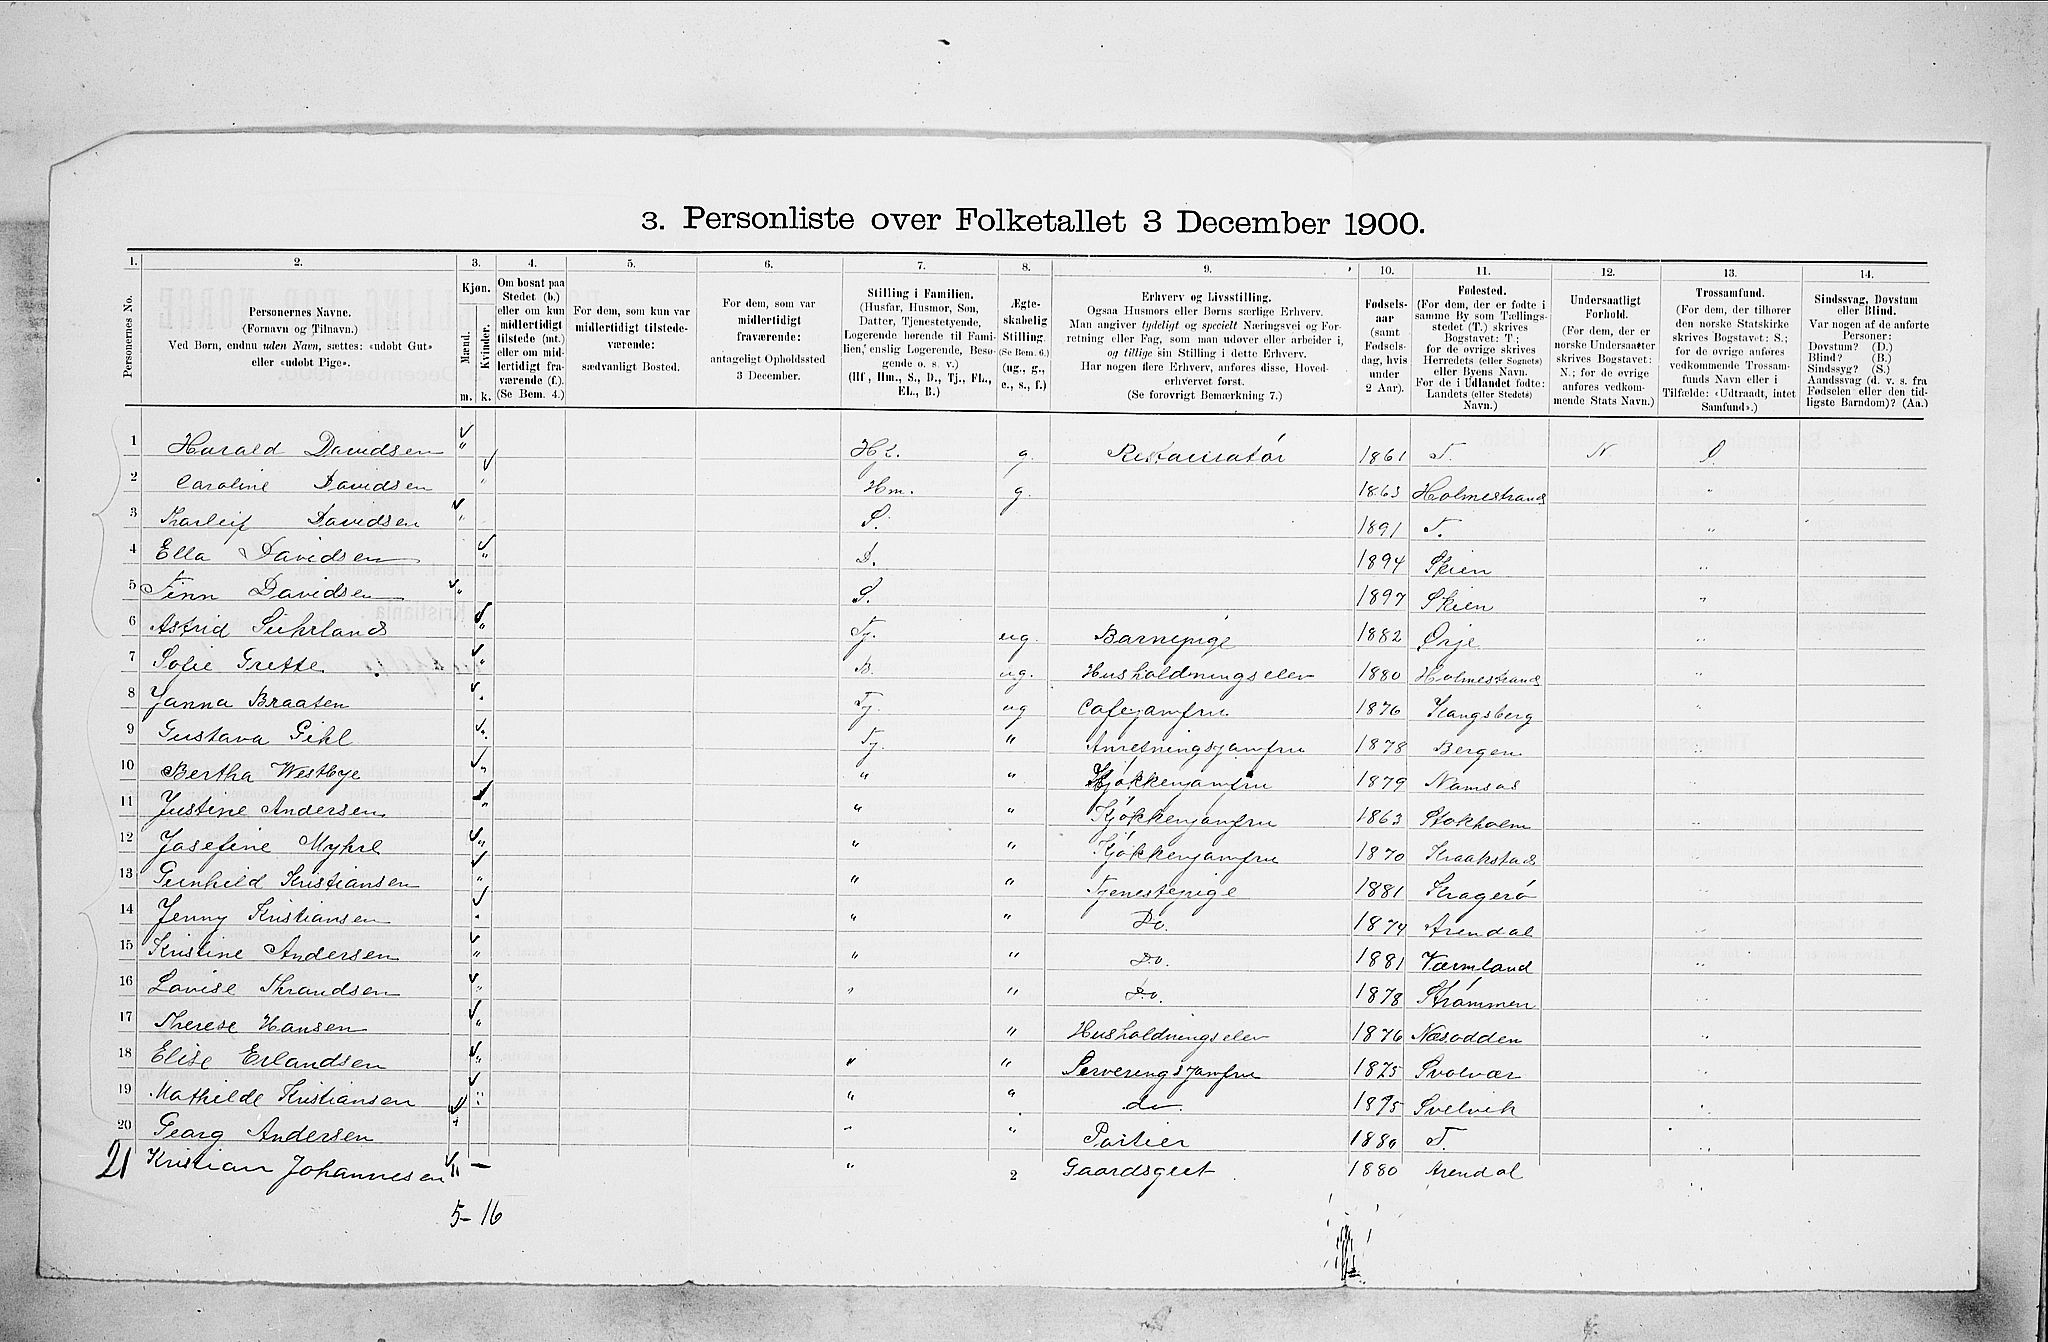 3. Personliste over Folketallet 3 December 1900.
1. 2. 3. 4. 5. 6. 7. 8. 9. 10. 11. 12. 13. 14.
Personernes No.
Personernes Navne.
(Fornavn og Tilnavn.)
Ved Børn, endnu uden Navn, sættes: «udøbt Gut»
eller «udøbt Pige».
Kjøn.
Mænd. Kvinder.
m. k.
Om bosat paa
Stedet (b.)
eller om kun
midlertidigt
tilstede (mt.)
eller om mid-
lertidigt fra-
værende (f.).
(Se Bem. 4.)
For dem, som kun var
midlertidigt tilstede-
værende:
sædvanligt Bosted.
For dem, som var
midlertidigt
fraværende:
antageligt Opholdssted
3 December.
Stilling i Familien.
(Husfar, Husmor, Søn,
Datter, Tjenestetyende,
Logerende hørende til Fami-
lien, enslig Logerende, Besø-
gende o. s. v.)
(Hf, Hm., S., D., Tj., FL.,
EL., B.)
Ægte-
skabelig
Stilling.
(Se Bem. 6.)
(ug., g.,
e., s., f.)
Erhverv og Livsstilling.
Ogsaa Husmors eller Børns særlige Erhverv.
Man angiver tydeligt og specielt Næringsvei og For-
retning eller Fag, som man udøver eller arbeider i,
og tillige sin Stilling i dette Erhverv.
Har nogen flere Erhverv, anføres disse, Hoved-
erhvervet først.
(Se forøvrigt Bemærkning 7.)
Fødsels-
aar
(samt
Fødsels-
dag, hvis
under
2 Aar).
Fødested.
(For dem, der er fødte i
samme By som Tællings-
stedet (T.) skrives
Bogstavet: T.;
for de øvrige skrives
Herredets (eller Sognets)
eller Byens Navn.
For de i Udlandet fødte:
Landets (eller Stedets)
Navn.)
Undersaatligt
Forhold.
(For dem, der er
norske Undersaatter
skrives Bogstavet:
N.; for de øvrige
anføres vedkom-
mende Stats Navn.)
Trossamfund.
(For dem, der tilhører
den norske Statskirke
skrives Bogstavet: S.;
for de øvrige anføres
vedkommende Trossam-
funds Navn eller i
Tilfælde: «Udtraadt, intet
Samfund».)
Sindssvag, Døvstum
eller Blind.
Var nogen af de anførte
Personer:
Døvstum? (D.)
Blind? (B.)
Sindssyg? (S.)
Aandssvag (d. v. s. fra
Fødselen eller den tid-
ligste Barndom)? (Aa.)
1 Harald Davidsen " Hf. g. Restauratør 1861 T. N S.
2 Caroline Davidsen " Hm. g. 1863 Holmestrand "
3 Thorleif Davidsen " S. 1891 T. "
4 Ella Davidsen " D. 1894 Skien "
5 Finn Davidsen " S. 1897 Skien "
6 Astrid Suhrland " Tj. ug. Barnepige 1882 Ørje "
7 Sofie Grette " B. ug. Husholdningselev 1880 Holmestrand "
8 Janna Braaten " Tj. ug Cafejomfru 1876 Kongsberg "
9 Gustava Gihl " Tj. " Anretningsjomfru 1878 Bergen "
10 Bertha Westbye " " " Kjøkkenjomfru 1879 Namsos "
11 Justine Andersen " " " Kjøkkenjomfru 1863 Stokholm "
12 Josefine Myhre " " " Kjøkkenjomfru 1870 Kraakstad "
13 Gunhild Kristiansen " " " Tjenestepige 1881 Kragerø "
14 Jenny Kristiansen " " " Do. 1874 Arendal "
15 Kristine Andersen " " " Do. 1881 Værmland "
16 Lovise Thrandsen " " " Do. 1878 Strømmen "
17 Therese Hansen " " Husholdningselev 1876 Næsodden "
18 Elise Erlandsen " " " Serveringsjomfru 1875 Svolvær "
19 Mathilde Kristiansen " " " do. 1875 Svelvik "
20 Georg Andersen " " " Portier 1880 T. "
21 Kristian Johannesen " — " 2 Gaardsgut 1880 Arendal "
5 - 16